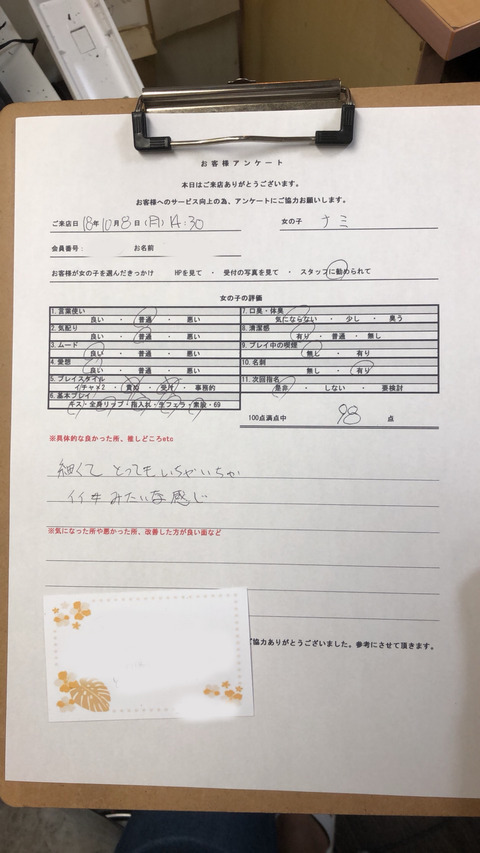 お客様アンケート
本日はご来店ありがとうございます。
お客様へのサービス向上の為、アンケートにご協力お願いします。
ご来店日 18年10月8日(月)14:30 女の子 ナミ
会員番号： お名前
お客様が女の子を選んだきっかけ HPを見て ・ 受付の写真を見て ・ スタッフに勧められて
女の子の評価
1.言葉使い
良い ・ 普通 ・ 悪い
2.気配り
良い ・ 普通 ・ 悪い
3.ムード
良い ・ 普通 ・ 悪い
4.愛想
良い ・ 普通 ・ 悪い
5.プレイスタイル
イチャ×2 ・ 責め ・ 受け ・ 事務的
6.基本プレイ
キス・全身リップ・指入れ・生フェラ・素股・69
7.口臭・体臭
気にならない ・ 少し ・ 臭う
8.清潔感
有り ・ 普通 ・ 無し
9.プレイ中の喫煙
無し ・ 有り
10.名刺
無し ・ 有り
11.次回指名
是非 ・ しない ・ 要検討
100点満点中 98 点
※具体的な良かった所、推しどころetc
細くてとってもいちゃいちゃ
みたいな感じ
※気になった所や悪かった所、改善した方が良い面など
ご協力ありがとうございました。参考にさせて頂きます。